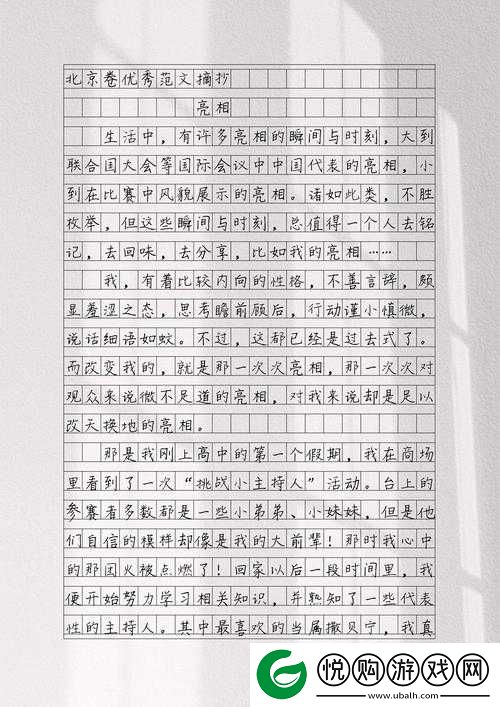 北京卷优秀范文摘抄
亮相
生活中，有许多亮相的瞬间与时刻，大到
联合国大会等国际会议中中国代表的亮相，小
到在比赛中风貌展示的亮相。诸如此类，不胜
枚举，但这些瞬间与时刻，总值得一个人去铭
记，去回味，去分享，比如我的亮相……
我，有着比较内向的性格，不善言辞，颇
显羞涩之态，思考瞻前顾后，行动谨小慎微，
说话细语如蚊。不过，这都已经是过去式了。
而改变我的，就是那一次次亮相，那一次次对
观众来说微不足道的亮相，对我来说却是足以
改天换地的亮相。
那是我刚上高中的第一个假期，我在商场
里看到了一次“挑战小主持人”活动。台上的
参赛者多数都是一些小弟弟、小妹妹，但是他
们自信的模样却像是我的大前辈！那时我心中
的那团火被点燃了！回家以后一段时间里，我
便开始努力学习相关知识，并熟知了一些代表
性的主持人。其中最喜欢的当属撒贝宁，我真
悦购游戏网
www.ubalh.com